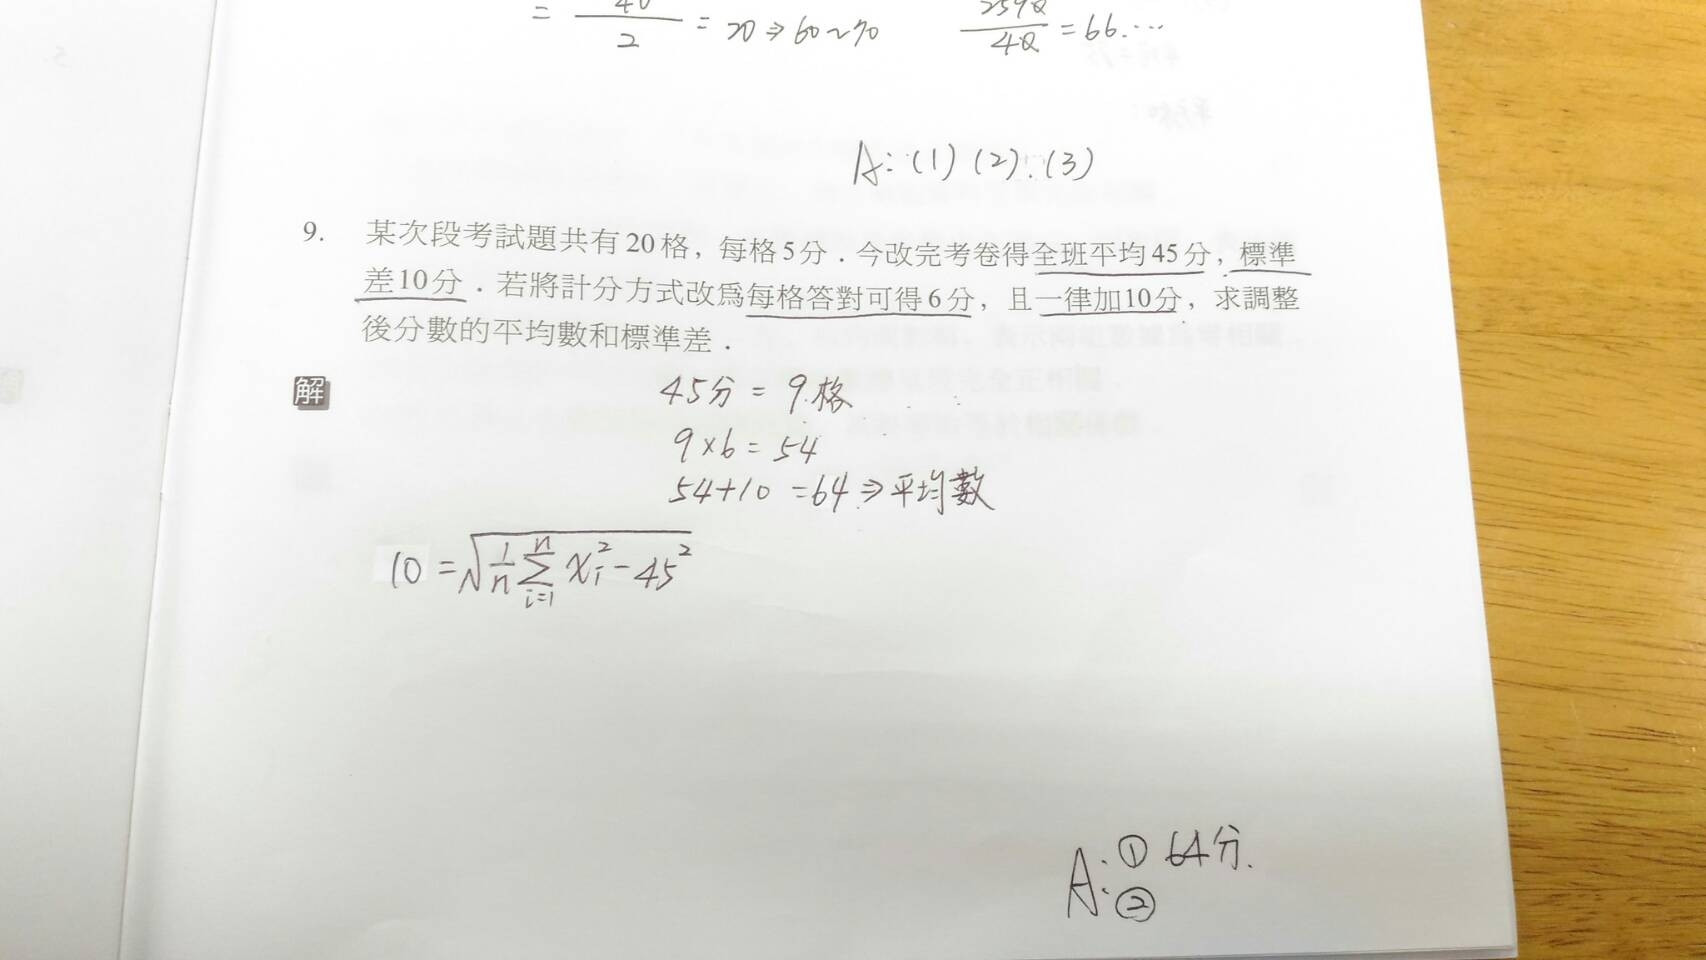 = 40/2 = 20 ⇒ 60~70
/48 = 66.…
A: (1) (2) (3)
9. 某次段考試題共有20格，每格5分．今改完考卷得全班平均45分，標準
差10分．若將計分方式改為每格答對可得6分，且一律加10分，求調整
後分數的平均數和標準差．
解
45分 = 9格
9×6 = 54
54+10 = 64 ⇒ 平均數
10 = √(1/n ∑_{i=1}^{n} x_i² − 45²)
A: ① 64分.
②